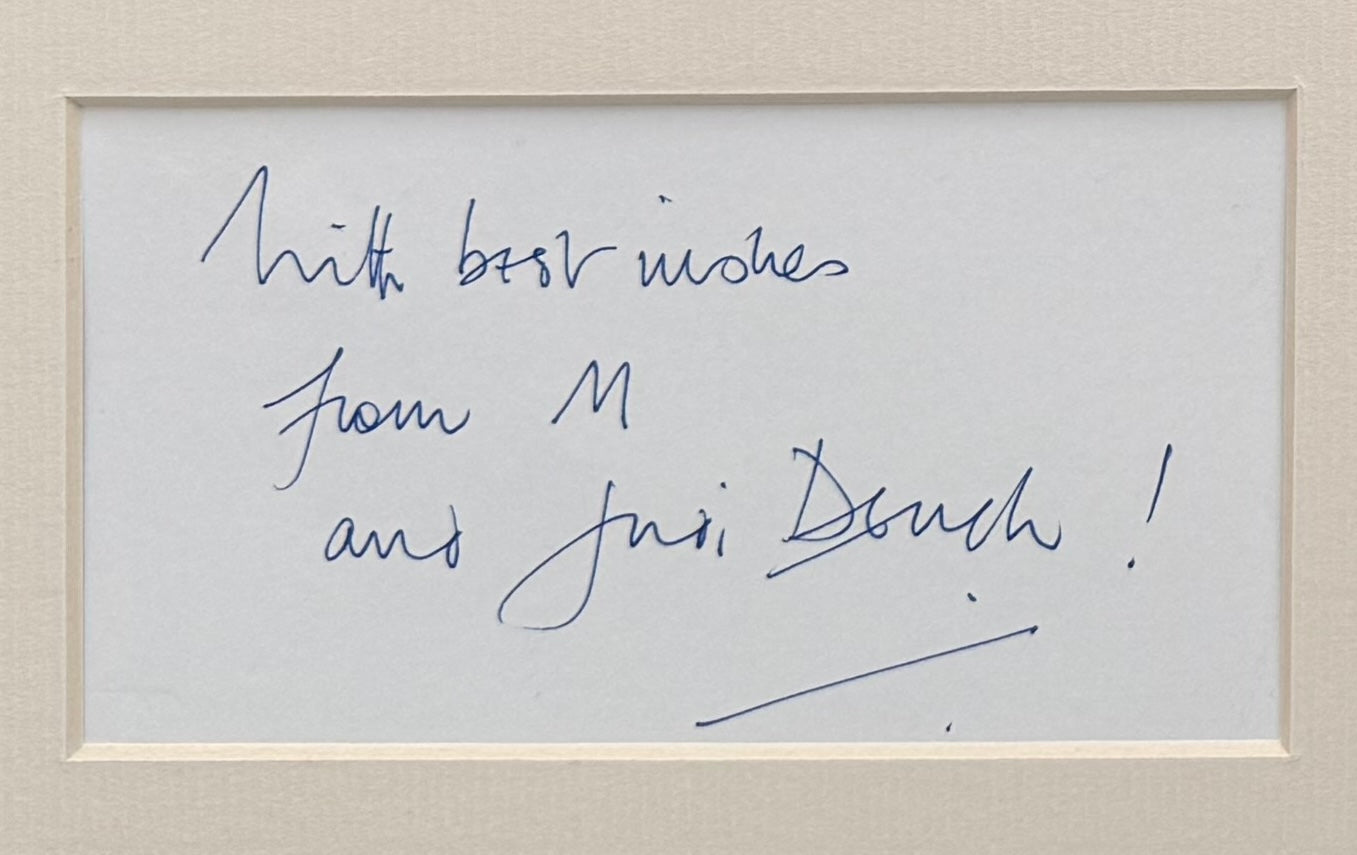 With best wishes
from M
and Judi Dench !